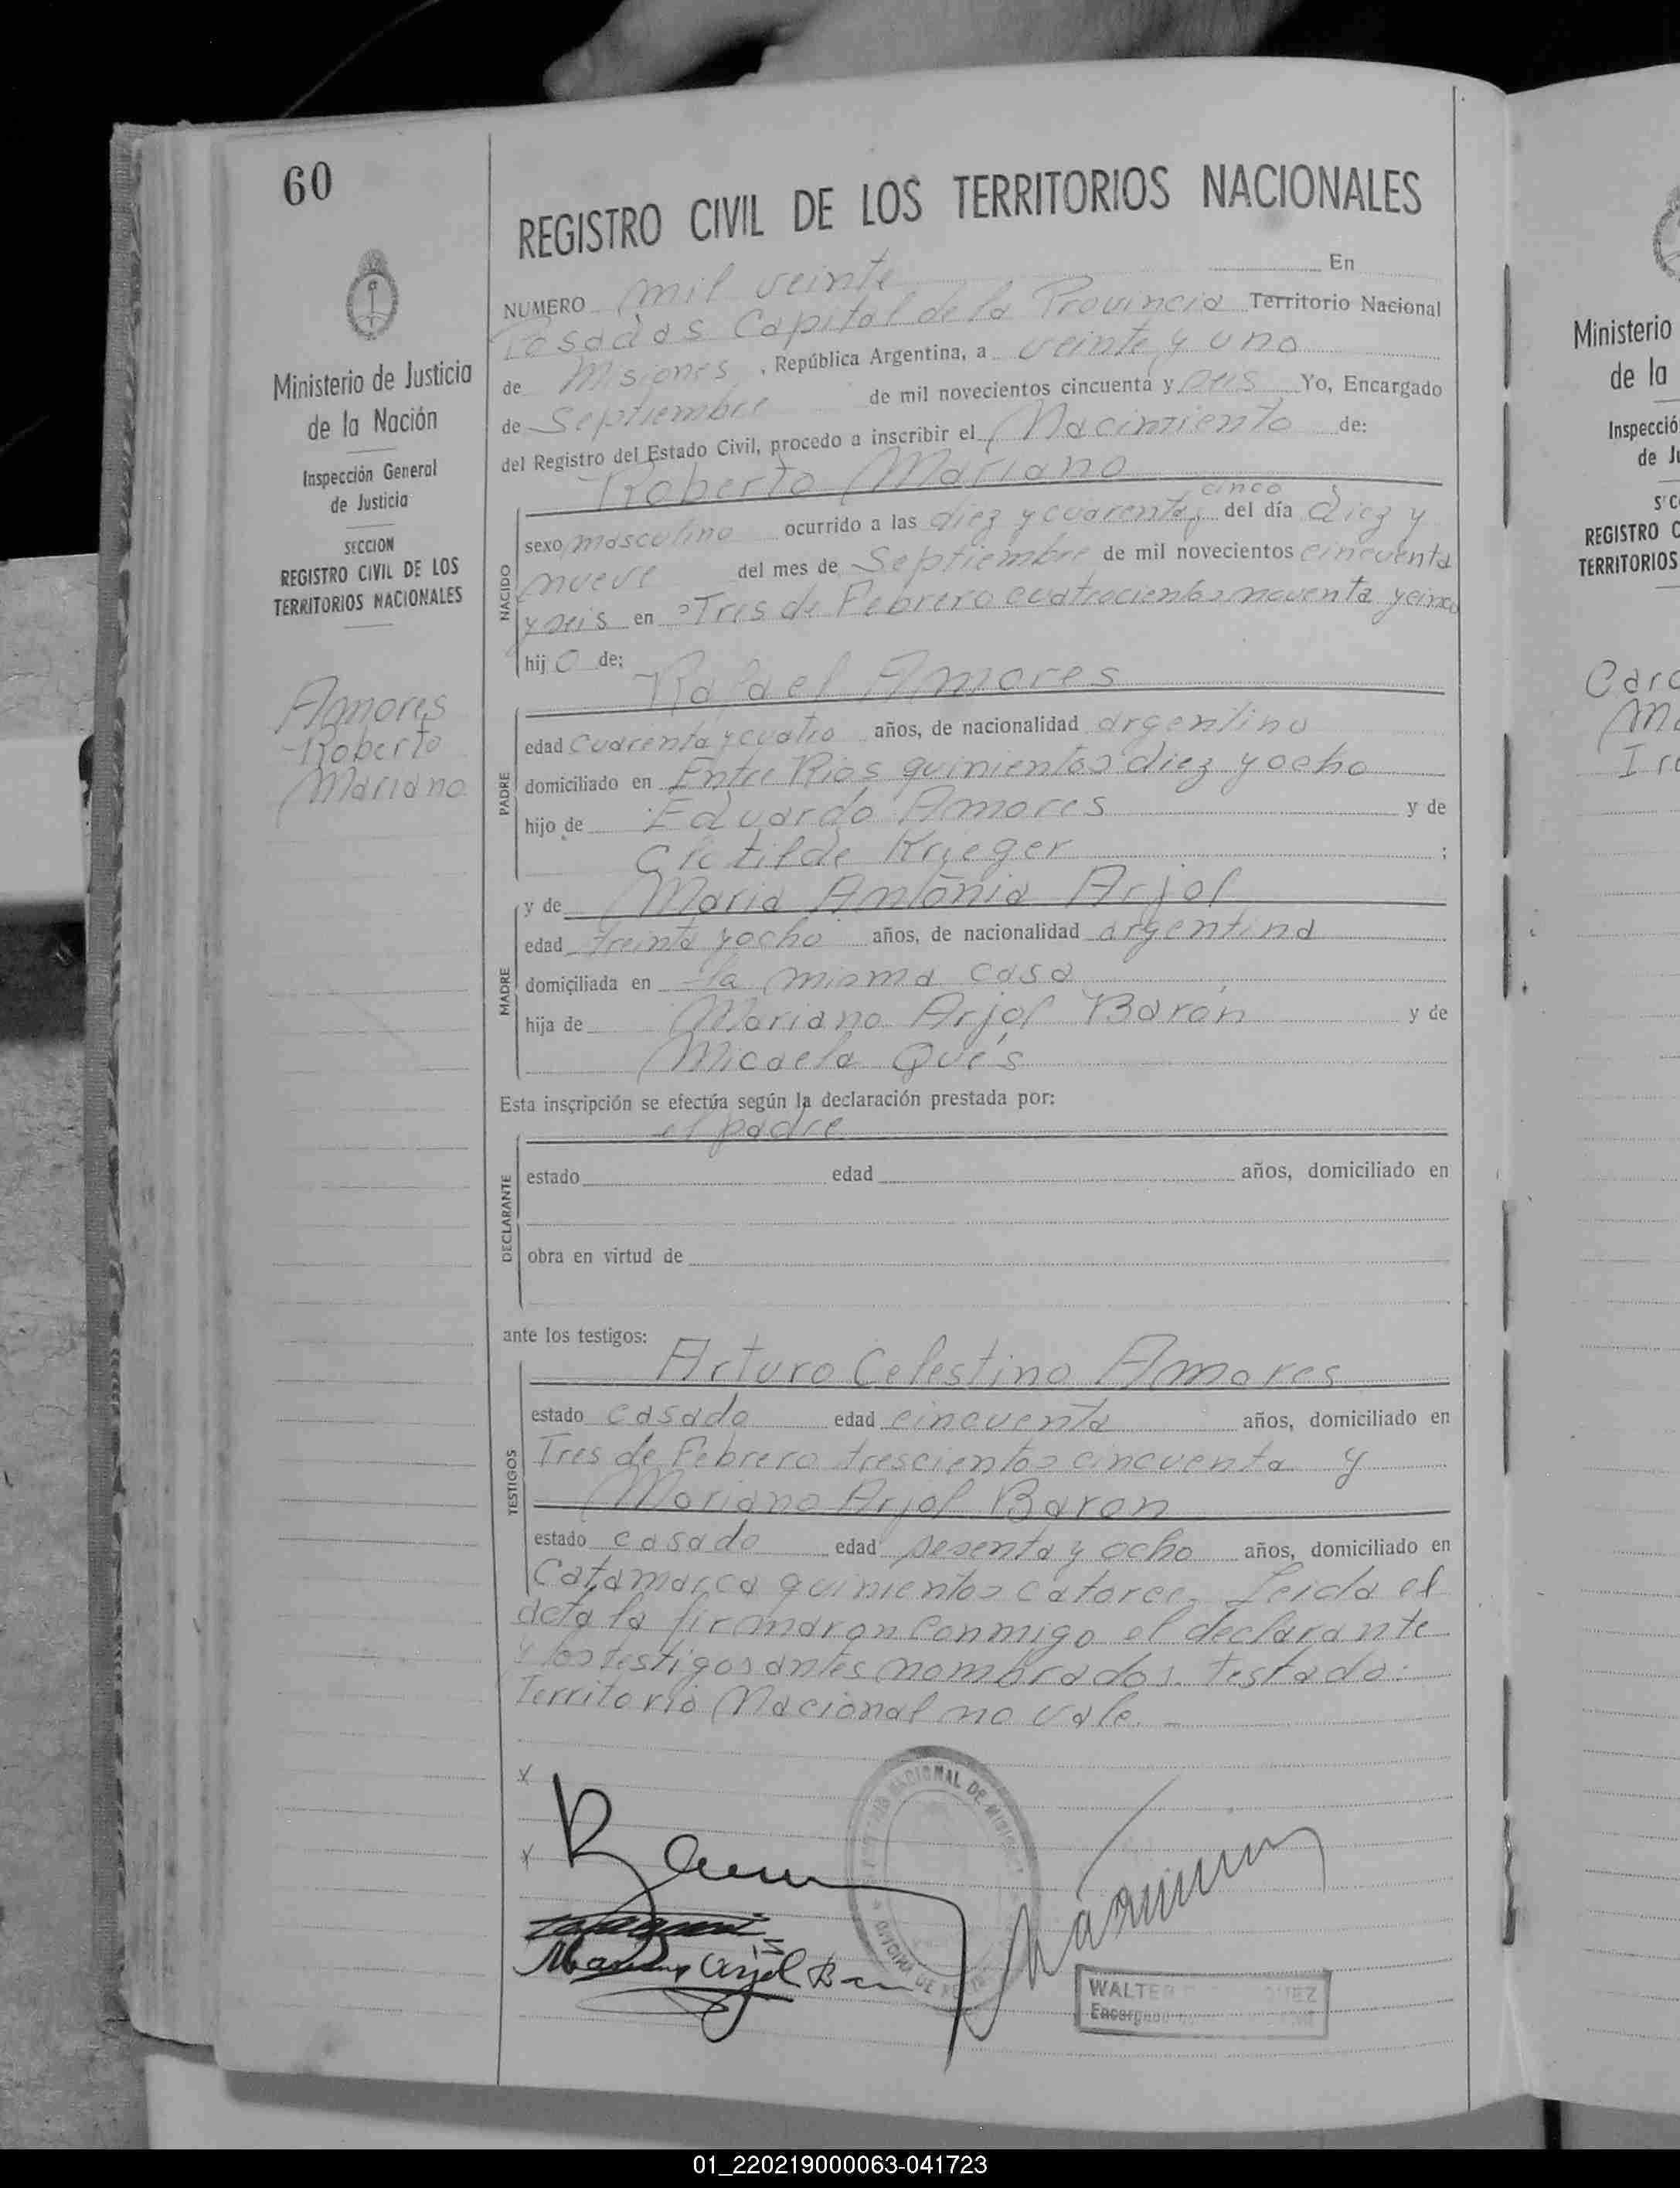 60
REGISTRO CIVIL DE LOS TERRITORIOS NACIONALES
Ministerio de Justicia
de la Nación
Inspección General
de Justicia
SECCION
REGISTRO CIVIL DE LOS
TERRITORIOS NACIONALES
Amores
Roberto
Mariano
NUMERO mil veinte En
Posadas Capital de la Provincia Territorio Nacional
de Misiones, República Argentina, a veinte y uno
de Septiembre de mil novecientos cincuenta y seis Yo, Encargado
del Registro del Estado Civil, procedo a inscribir el Nacimiento de:
Roberto Mariano
cinco
NACIDO
sexo masculino ocurrido a las diez y cuarenta y del día diez y
nueve del mes de Septiembre de mil novecientos cincuenta
y seis en Tres de Febrero cuatrocientos noventa y cinco
hijo de:
Rafael Amores
PADRE
edad cuarenta y cuatro años, de nacionalidad argentino
domiciliado en Entre Rios quinientos diez y ocho
hijo de Eduardo Amores y de
Clotilde Krieger ;
y de Maria Antonia Arjol
MADRE
edad treinta y ocho años, de nacionalidad argentina
domiciliada en la misma casa
hija de Mariano Arjol Barón y de
Micaela Qués
Esta inscripción se efectúa según la declaración prestada por:
el padre
DECLARANTE
estado edad años, domiciliado en
obra en virtud de
ante los testigos:
Arturo Celestino Amores
TESTIGOS
estado casado edad cincuenta años, domiciliado en
Tres de Febrero trescientos cincuenta y
Mariano Arjol Baron
estado casado edad sesenta y ocho años, domiciliado en
Catamarca quinientos catorce. Leida el
acta la firmaron conmigo el declarante
y los testigos antes nombrados. Testado:
Territorio Nacional no vale.-
x
x
NACIONAL DE MISIONES
OFICINA DE
Mariano Arjol
WALTER
Encargado
Ministerio
de la
Inspecció
de Ju
REGISTRO C
TERRITORIOS
01_220219000063-041723